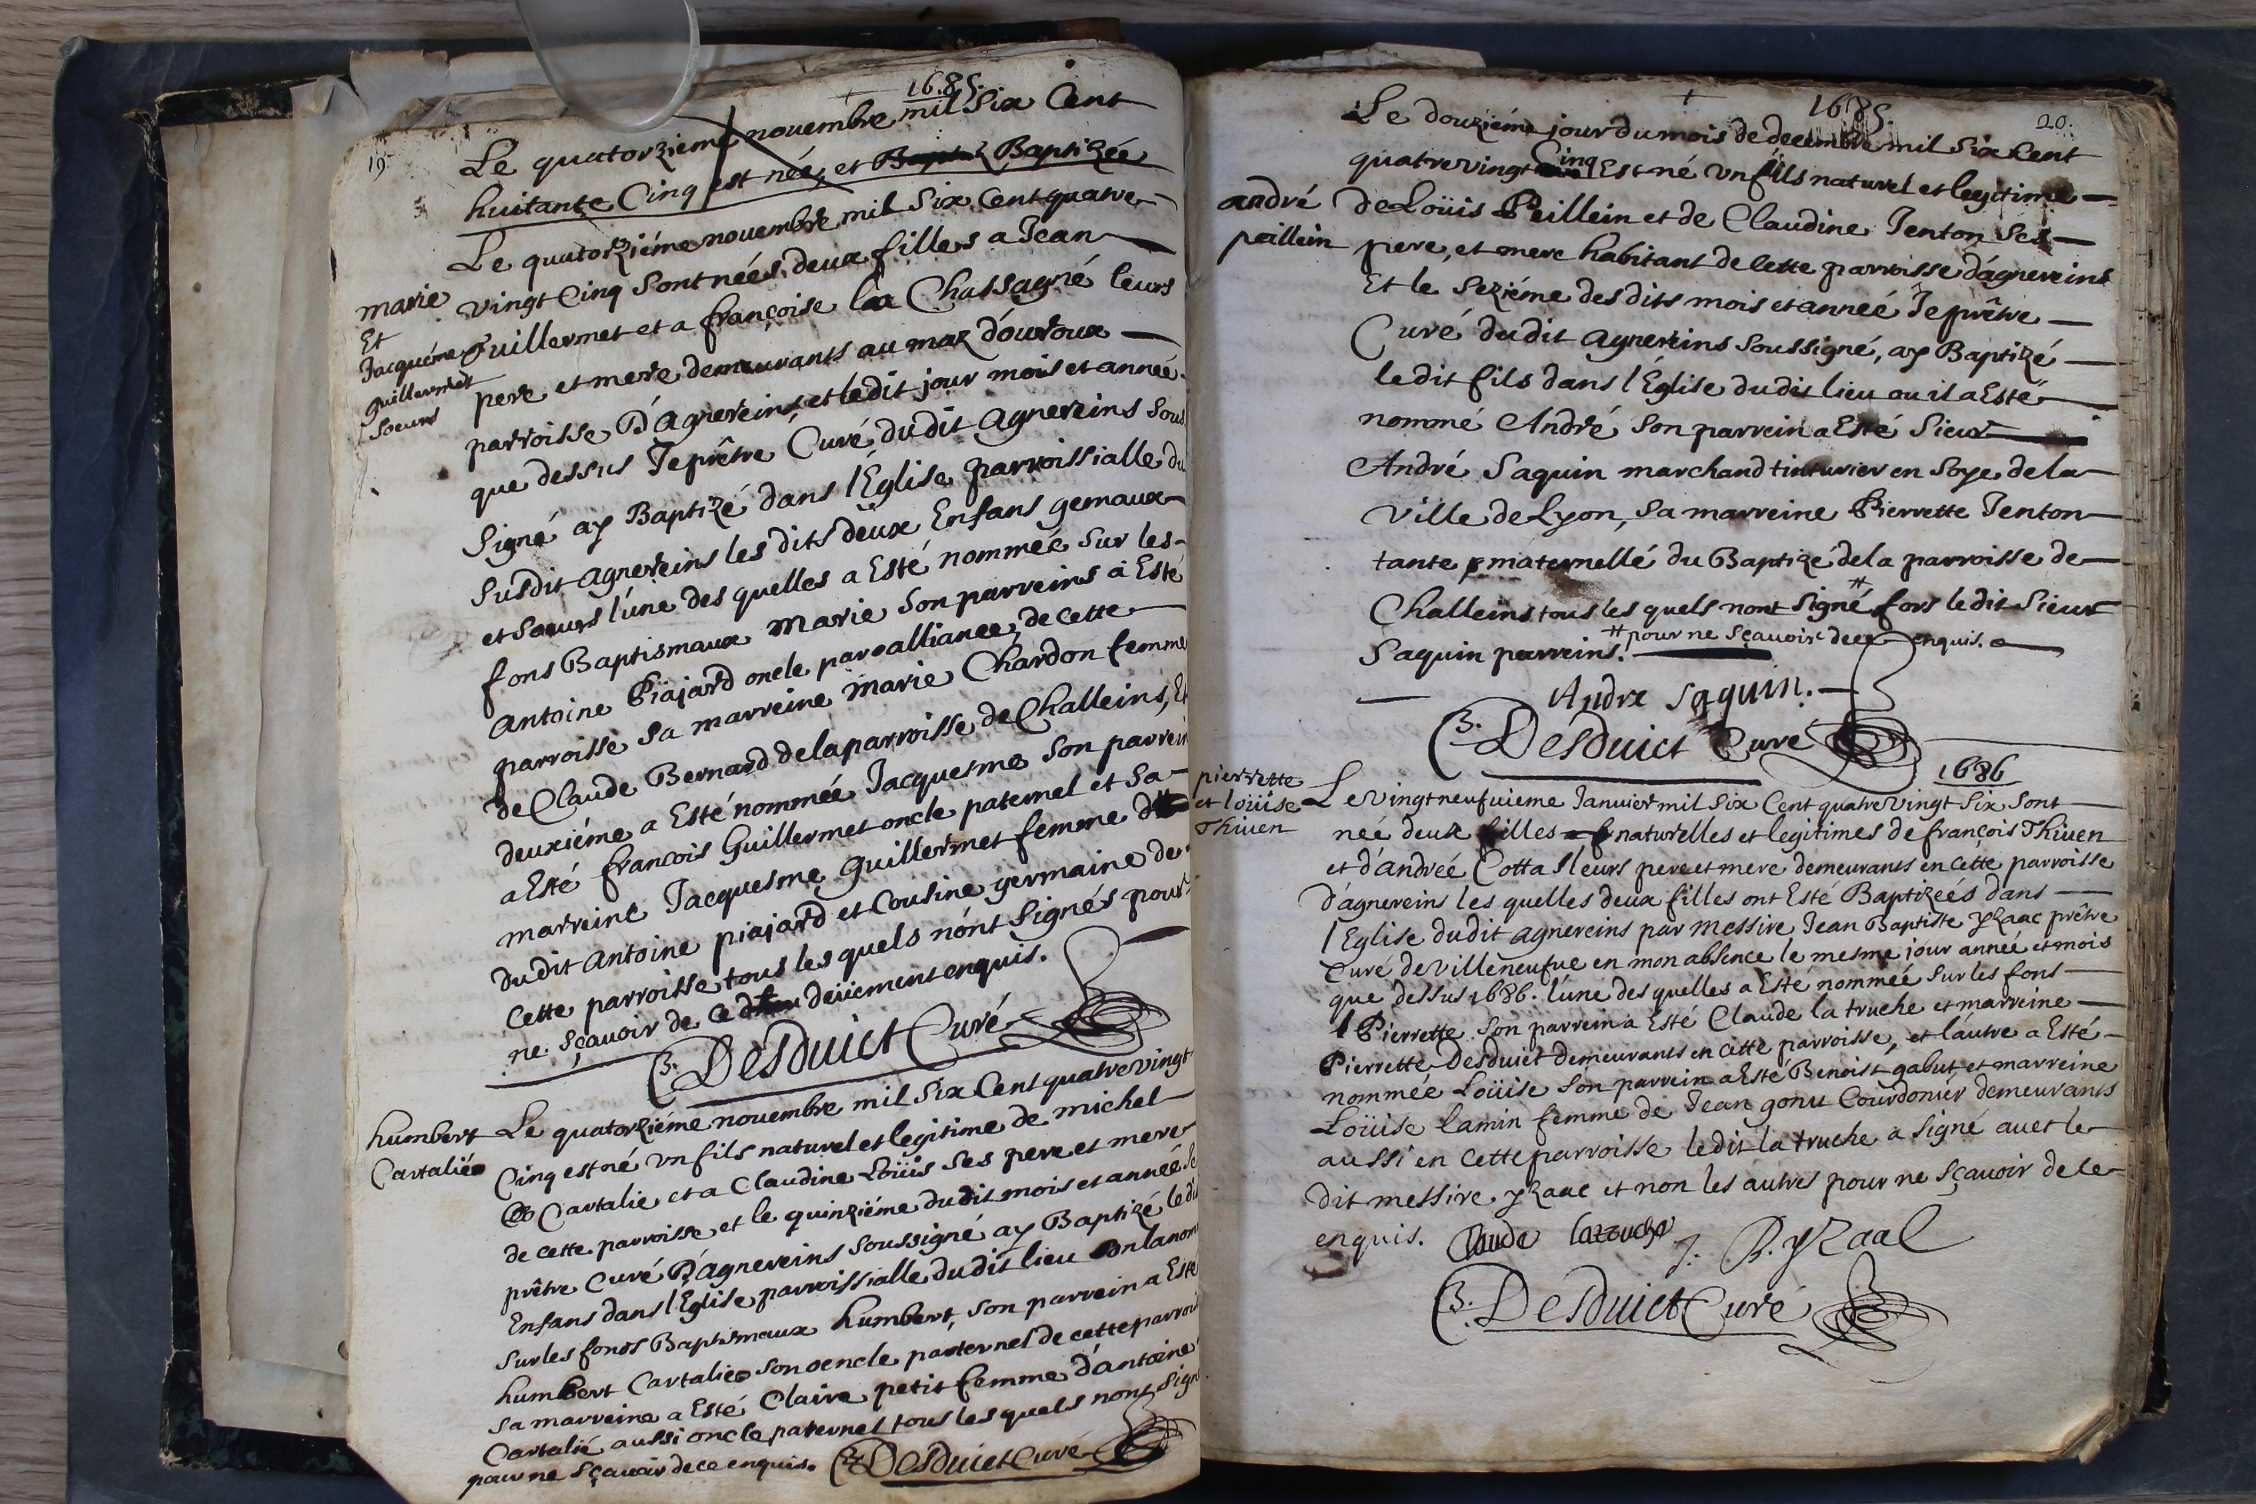 1685.
19
Le quatorzieme novembre mil six Cent
huitante Cinq est née, et Baptizée
Le quatorziéme novembre mil six Cent quatre
marie
Et
Jacquéme
guillermet
soeurs
vingt Cinq sont nées deux filles a Jean
Guillermet et a françoise la Chassagne leurs
pere et mere demeurants au maz d'ouroux
parroisse D'agnereins, et ledit jour mois et année
que dessus Je prêtre Curé dudit agnereins sous
signé ay Baptizé dans l'Eglise parroissialle du
susdit agnereins les dits deux Enfans gemaux
et soeurs l'une des quelles a Esté nommée sur les
fons Baptismaux Marie son parreins a Esté
antoine Piajard oncle par alliance de cette
parroisse sa marreine Marie Chardon femme
de Claude Bernard de la parroisse de Challeins, Et
deuxiéme a Esté nommée Jacquesme son parrein
a Esté francois Guillermet oncle paternel et sa
marreine Jacquesme guillermet femme
du dit antoine piajard et Cousine germaine de
cette parroisse tous les quels n'ont signés pour
ne sçavoir de ce deüement enquis.
B. Desduict Curé
humbert
Cartalié
Le quatorziéme novembre mil six Cent quatre vingt
Cinq est né un fils naturel et legitime de michel
Cartalie et a Claudine Loüis ses pere et mere
de cette parroisse et le quinziéme dudit mois et anneé Je
prêtre Curé D'agnereins soussigné ay Baptizé le dit
Enfans dans l'Eglise parroissialle dudit lieu on la nom
sur les fonds Baptismaux humbert, son parrein a Esté
humbert Cartalie son oencle paternel de cette parrois
sa marreine a Esté Claire petit femme d'antoine
Cartalié aussi oncle paternel tous les quels n'ont signé
pour ne sçavoir de ce enquis. B. Desduict Curé
1685.
20.
Le douziéme jour du mois de decembre mil six Cent
quatre vingt Cinq Est né un fils naturel et legitime
andré
peillein
de Loüis Peillein et de Claudine Tenton ses
pere, et mere habitant de cette parroisse d'agnereins
Et le seziéme desdits mois et anneé Je prêtre
Curé du dit agnereins soussigné, ay Baptizé
le dit fils dans l'Église dudit lieu ou il a Esté
nommé André son parrein a Esté Sieur
André Saquin marchand tinturier en soye de la
ville de Lyon, sa marreine Pierrette Tenton
tante maternellé du Baptizé de la parroisse de
Challeins tous les quels nont signé # fors le dit Sieur
Saquin parreins. # pour ne sçavoir de ce enquis.
Andre saquin.
B. Desduict Curé
1686
pierrette
et loüise
Thiven
Le vingt neufuieme Janvier mil six Cent quatre vingt six sont
neé deux filles naturelles et legitimes de françois Thiven
et d'andreé Cottas leurs pere et mere demeurants en cette parroisse
d'agnereins les quelles deux filles ont Esté Baptizeés dans
l'Eglise dudit agnereins par messire Jean Baptiste yzaac prêtre
Curé de villeneufue en mon absence le mesme jour anneé et mois
que dessus 1686. l'une des quelles a Esté nommeé sur les fons
Pierrette son parrein a Esté Claude la truche et marreine
Pierrette Desduict demeurants en cette parroisse, et láutre a Esté
nommée Loüise son parrein a Esté Benoist gabut, et marreine
Loüise Lamin femme de Jean gonu Courdonier demeurants
aussi en cette parroisse le dit la truche a signé avet le
dit messire yzaac et non les autres pour ne sçavoir de ce
enquis. Claude latruche J. B. yzaac
B. Desduict Curé